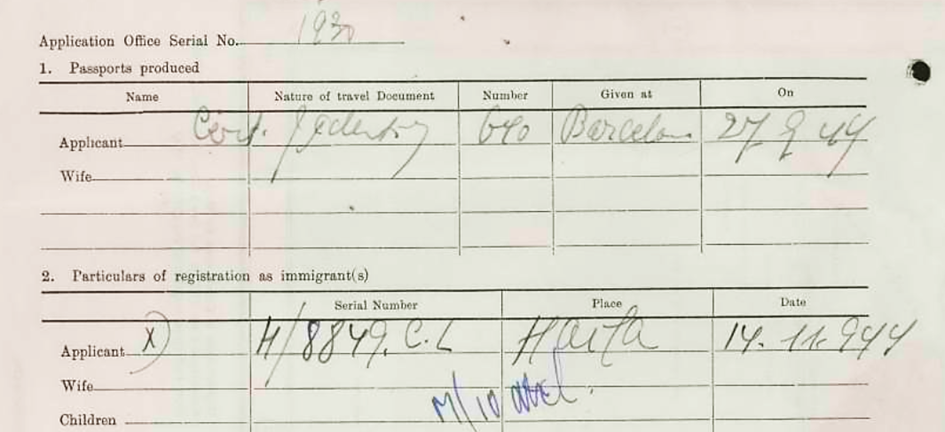 Application Office Serial No. 1930
1. Passports produced
Name Nature of travel Document Number Given at On
Applicant Cert. of identity 640 Barcelona 27 9 44
Wife
2. Particulars of registration as immigrant(s)
Serial Number Place Date
Applicant X) H/8849. C.L Haifa 14. 11. 944
Wife
Children